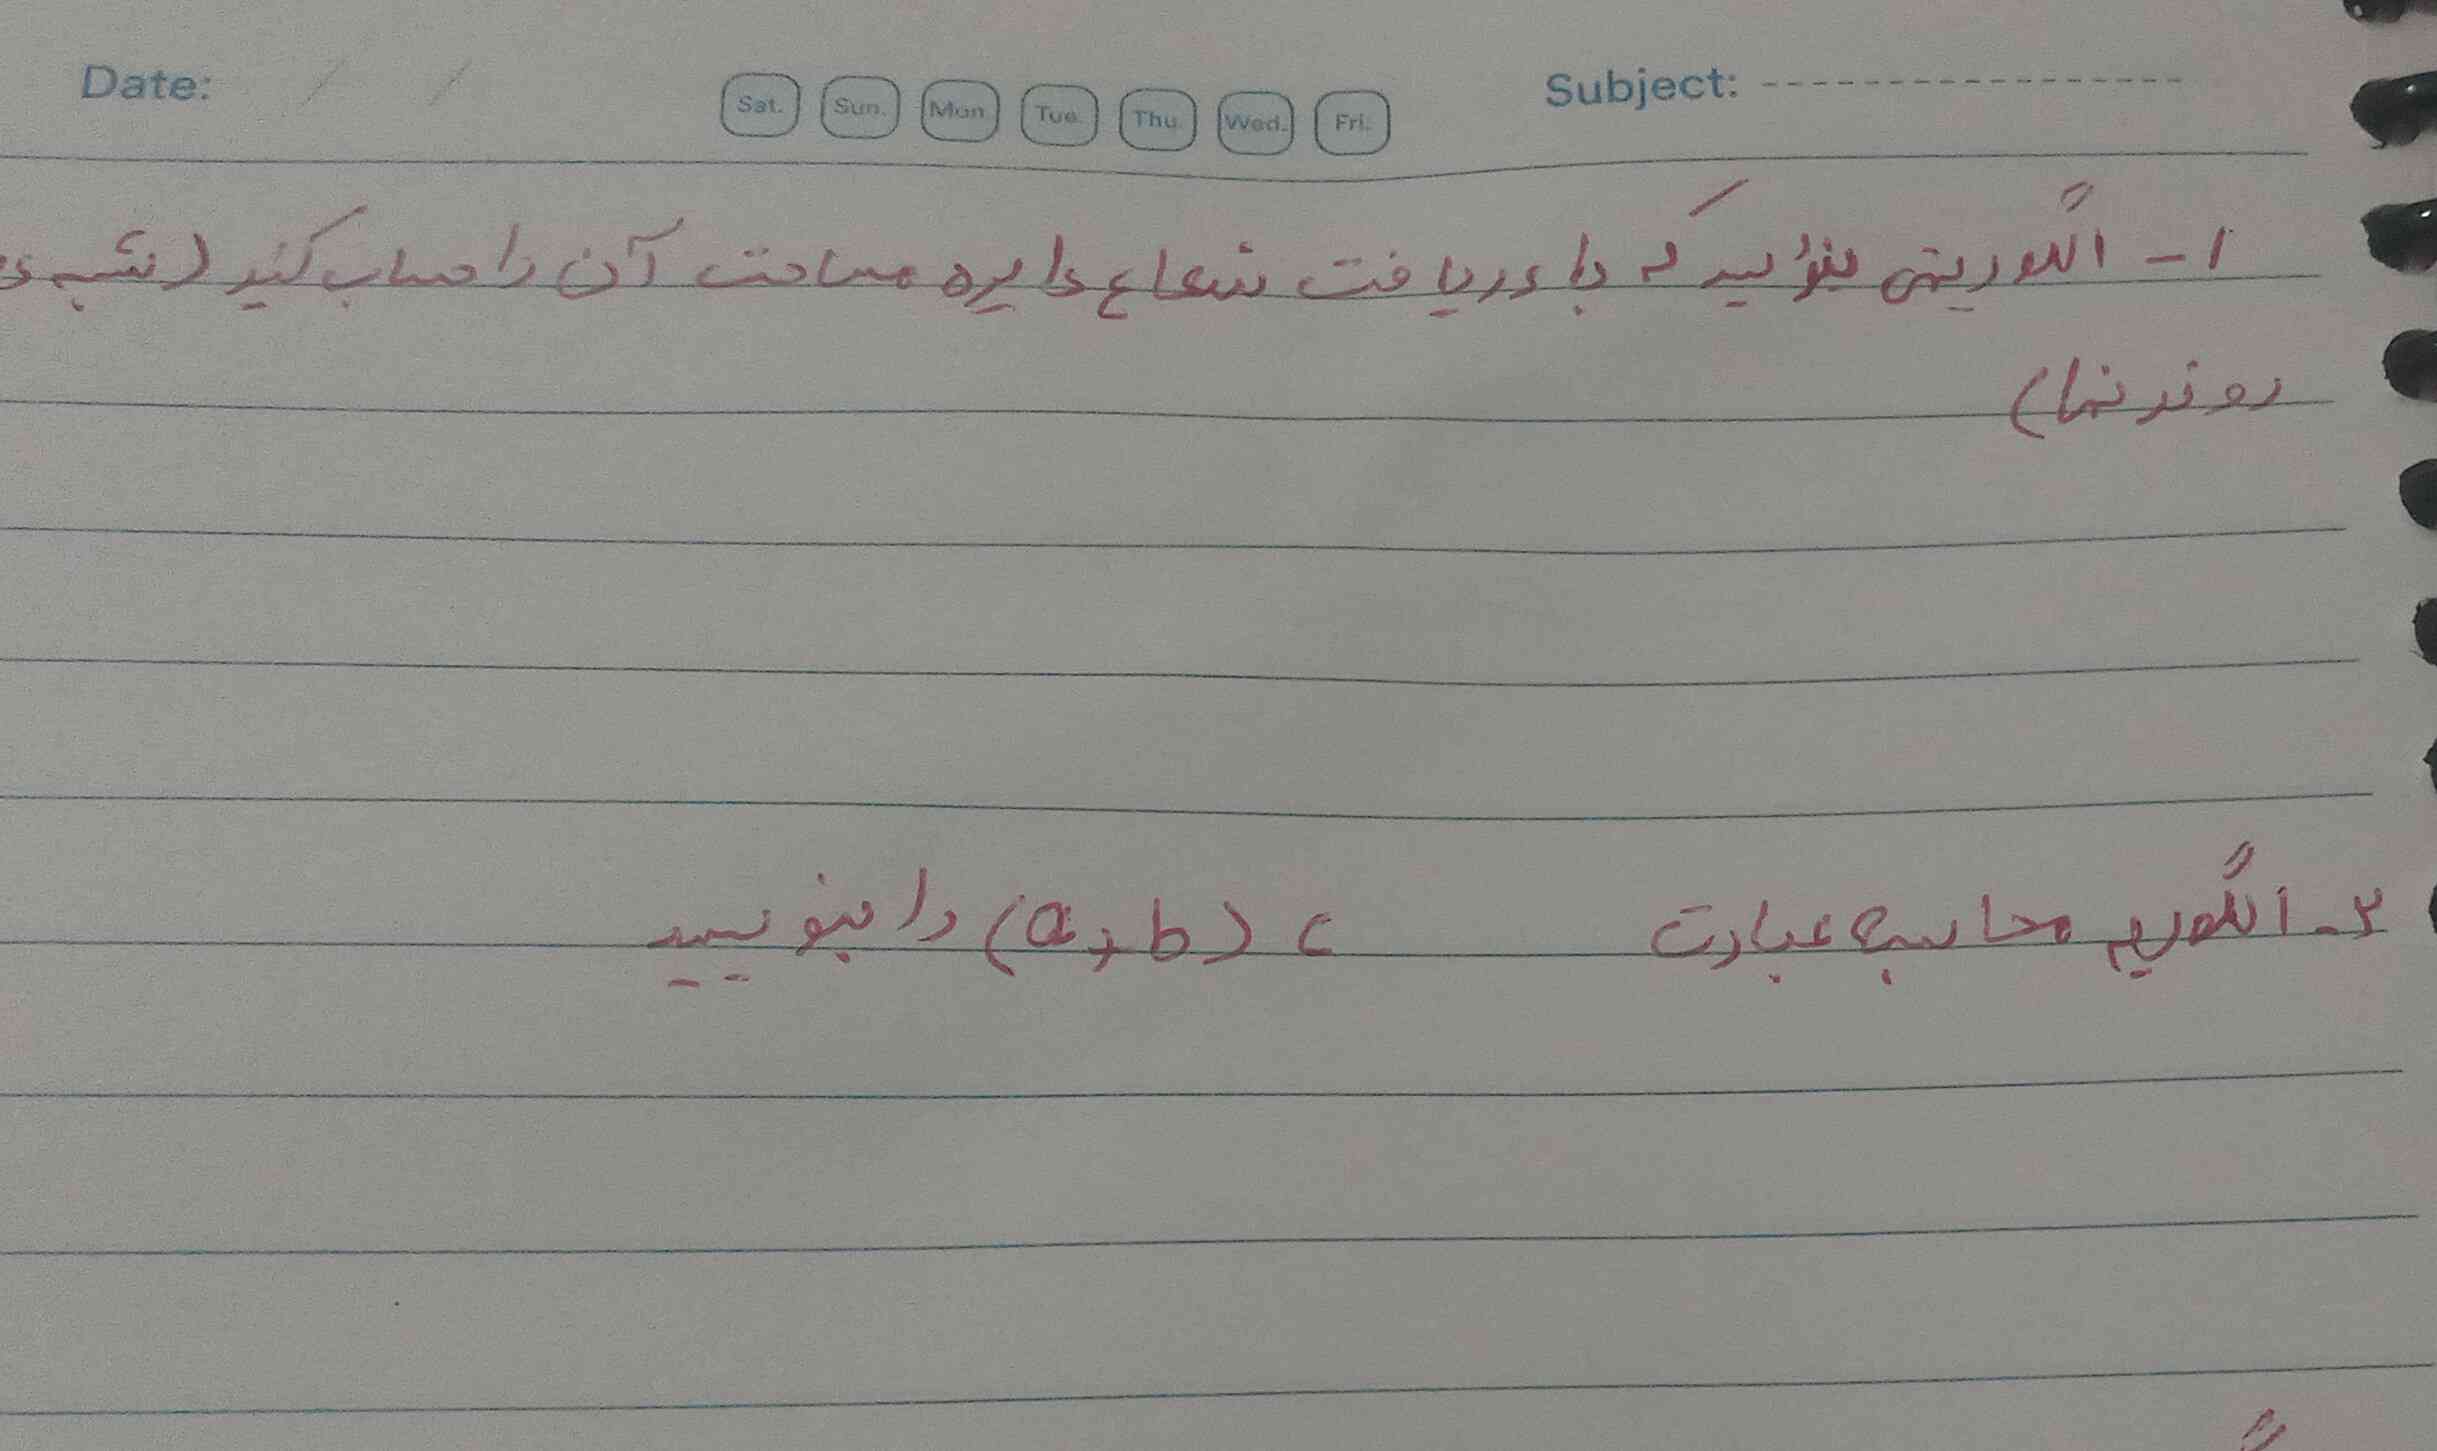 Date: / / Sat. Sun. Mon. Tue. Thu. Wed. Fri. Subject:
۱- الگوریتمی بنوئیسید که با دریافت شعاع دایره مساحت آن را حساب کنید (شبه
روندنما)
۲- الگوریم محاسبه عبارت (a+b) c را بنویسید